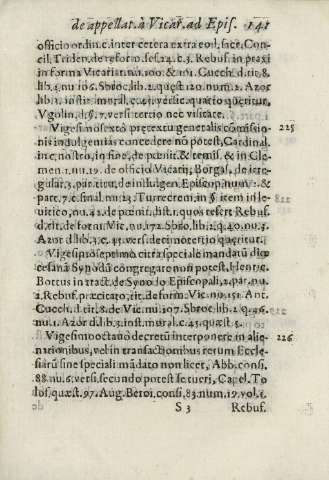 de appellat. à Vicar. ad Epis. 141
officio ordin. c. inter cetera extra eod. sacr. Con
cil. Triden. de reform. ses. 24. c. 3. Rebuf. in praxi
in forma Vicariat. nu. 100. & 101. Cucch. d. tit. 8.
lib. 4. nu. 106. Sbroc. lib. 2. quęst. 120. num. 2. Azor
lib. 1. instit. moral. c. 45. verſic. quarto quęritur,
Vgolin. d. §. 7. verſ. tertio nec viſitare.
Vigeſimoſexto prętextu generalis cõmiſsio- 225
nis indulgentias concedere nõ poteſt, Cardinal.
in c. noſtro, in fine, de pœnit. & remiſ. & in Cle-
men. 1. nu. 19. de officio Vicarij, Borgaſ. de irre-
gular. 3. par. titu. de indulgen. Epiſcop. num. 2. &
part. 7. c. final. nu. 23. Turrecrem. in § item in le-
uitico, nu. 42. de pœnit. diſt. 1. quos refert Rebuf.
d. tit. de forma Vic. nu. 172. Sbro. lib. 2. q. 40. nu. 5.
Azor d. lib. 3. c. 45. verſ. decimotertio quęritur.
Vigeſiproſeptimo citra ſpeciale mandatũ diœ
ceſanã Synodũ congregare non poteſt, Henric.
Bottus in tract. de Synodo Epiſcopali, 2. par. nu.
2. Rebuf. pręcitato, tit. de form. Vic. nu. 151. Ant.
Cucch. d. tit. 8. de Vic. nu. 107. Sbroc. lib. 2. q. 96.
nu. 1. Azor d. lib. 3. inſt. mural. c. 45. quæſt. 5.
Vigeſimooctauò decretũ interponere in alie- 226
nationibus, vel in tranſactionibus rerum Eccle-
ſiarũ ſine ſpeciali mãdato non licet, Abb. conſi.
88. nu. 6. verſ. ſecundo poteſt ſe tueri, Capel. To
loſ. quæſt. 97. Aug. Beroi. conſi. 83. num. 19. vol. 1.
S 3 Rebuf.